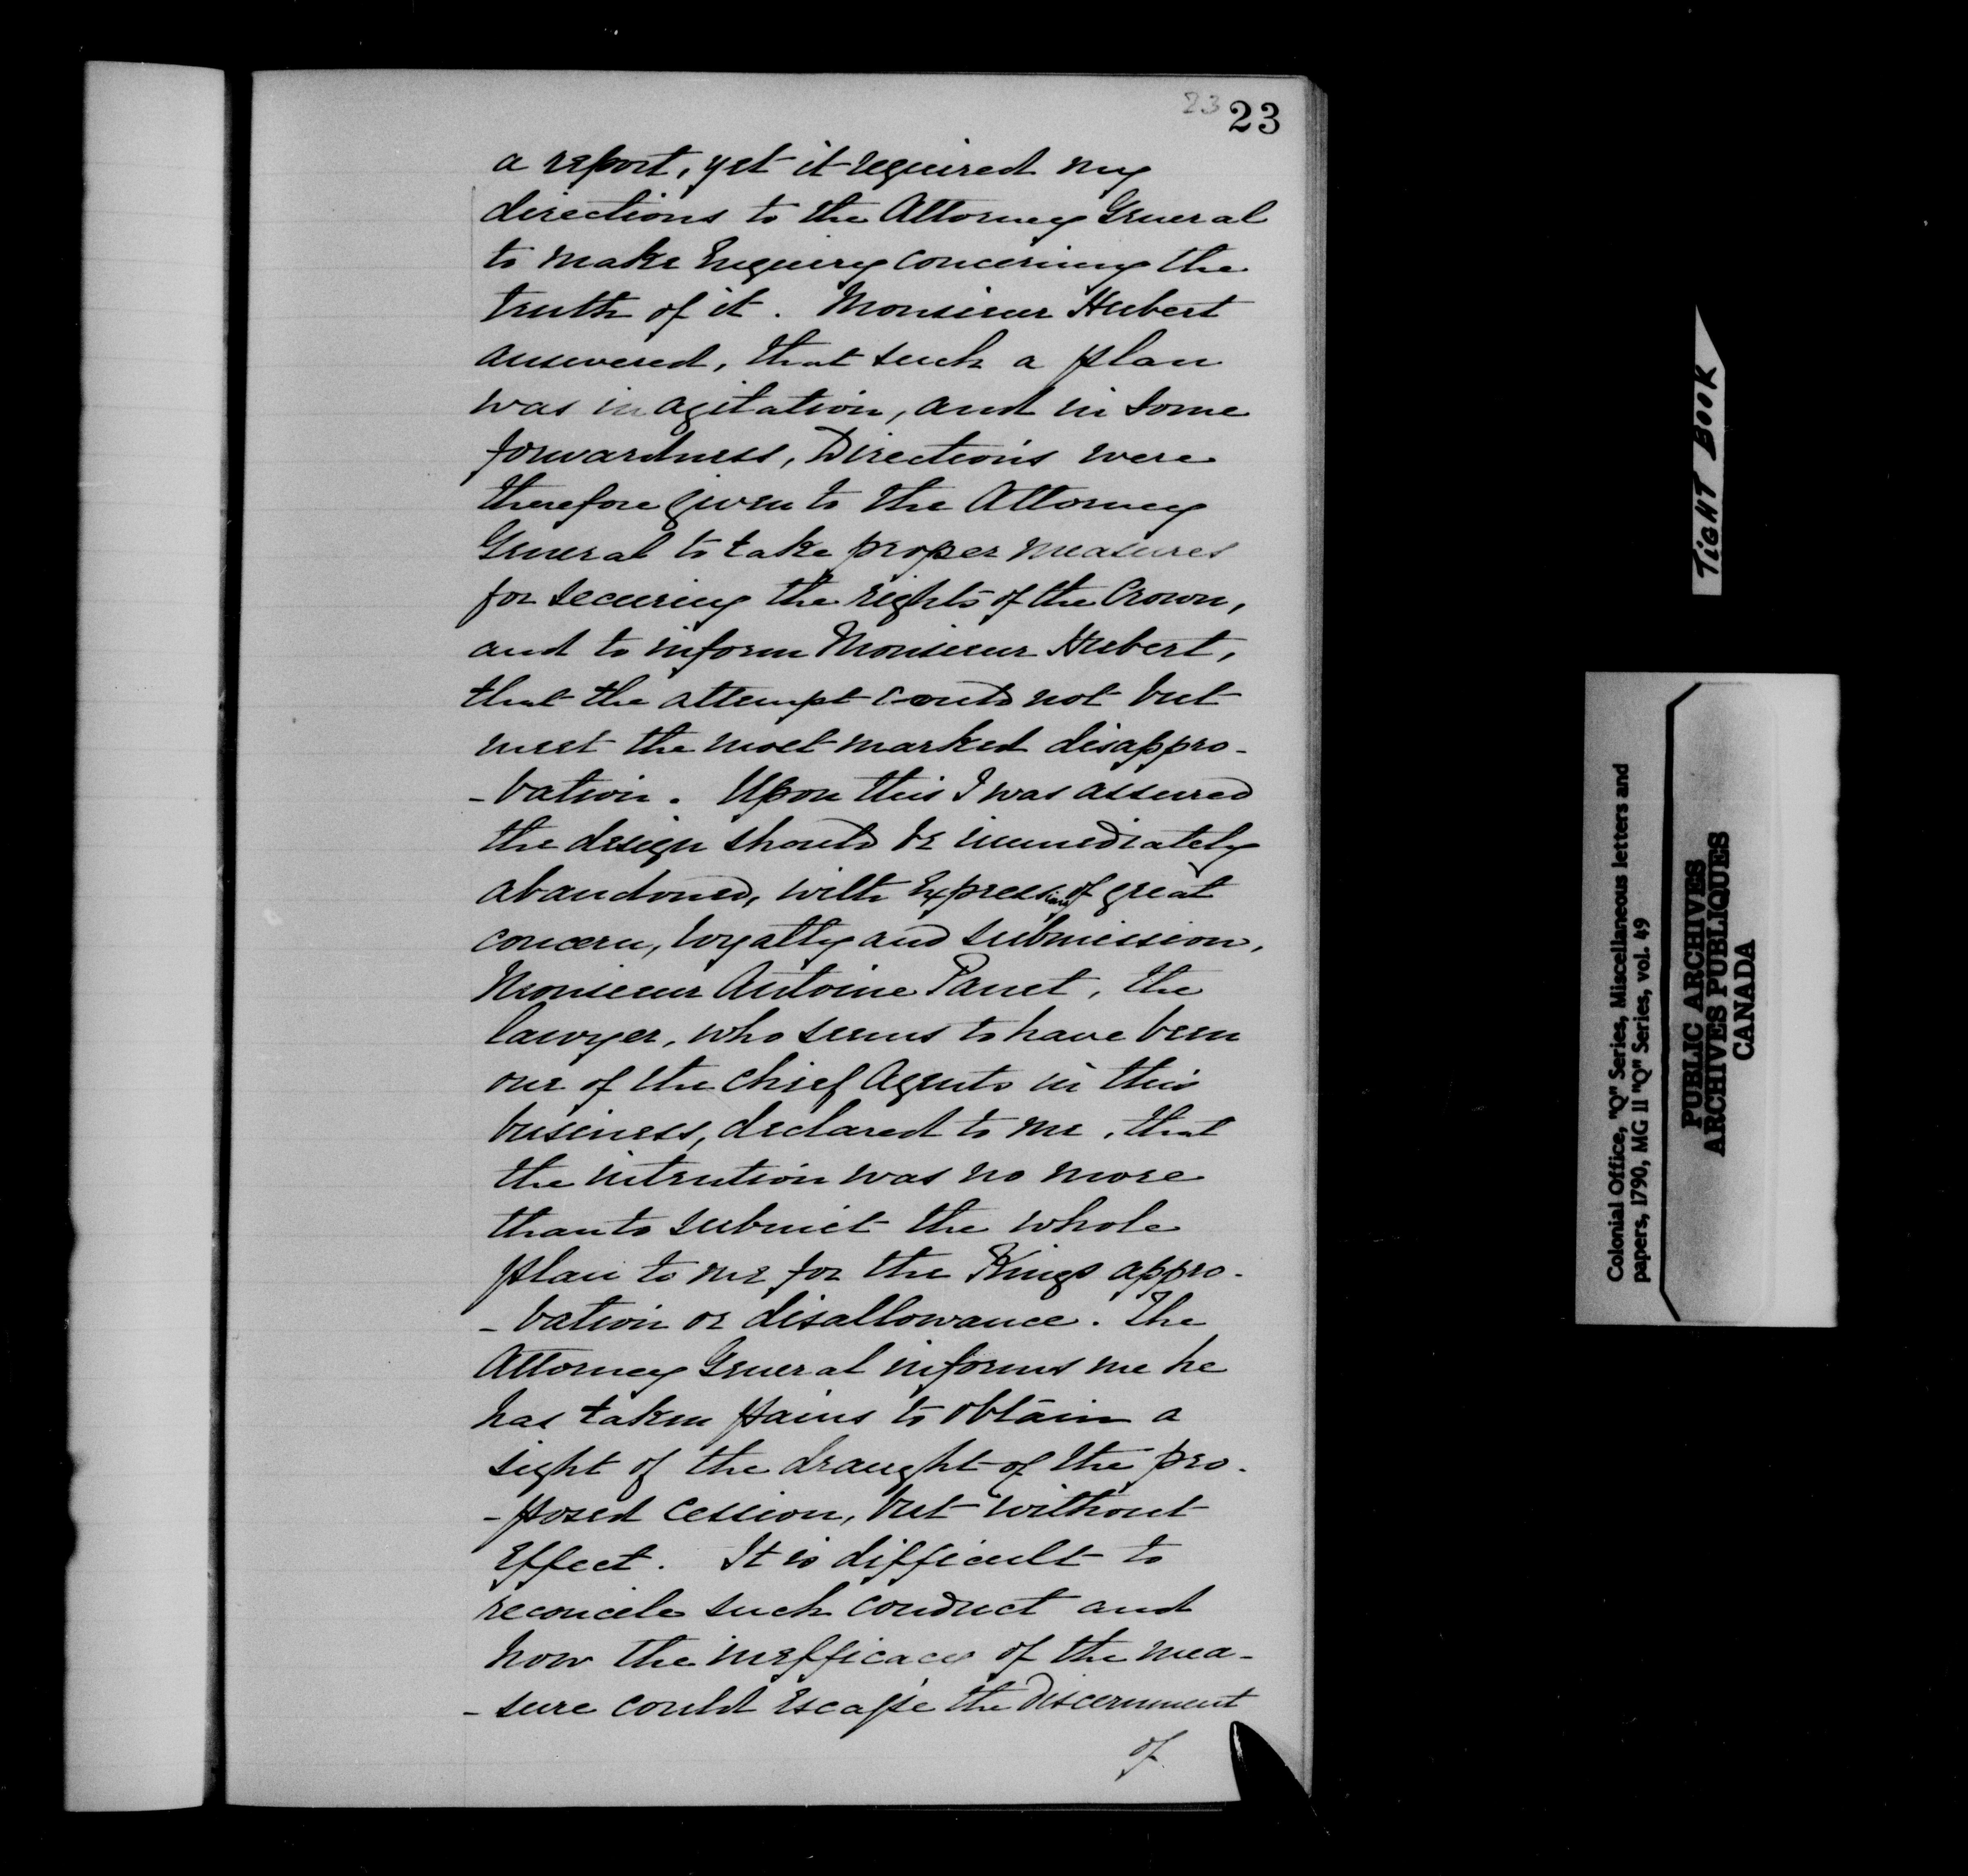 23 23
a report, yet it required my
directions to the Attorney General
to make Enquiry concerning the
truth of it. Monsieur Hubert
answered, that such a plan
was in agitation, and in some
forwardness, Directions were
therefore given to the Attorney
General to take proper measures
for securing the rights of the Crown,
and to inform Monsieur Hubert,
that the attempt could not but
meet the most marked disappro-
-bation. Upon this I was assured
the design should be immediately
abandoned, with Expressions of great
concern, loyalty and submission,
Monsieur Antoine Panet, the
lawyer, who seems to have been
one of the chief Agents in this
business, declared to me, that
the intention was no more
than to submit the whole
plan to me for the Kings appro-
-bation or disallowance. The
Attorney General informs me he
has taken pains to obtain a
sight of the draught of the pro-
-posed cession, but without
Effect. It is difficult to
reconcile such conduct and
how the inefficacy of the mea-
-sure could Escape the Discernment
of
TIGHT BOOK
Colonial Office, "Q" Series, Miscellaneous letters and
papers, 1790, MG 11 "Q" Series, vol. 49
PUBLIC ARCHIVES
ARCHIVES PUBLIQUES
CANADA